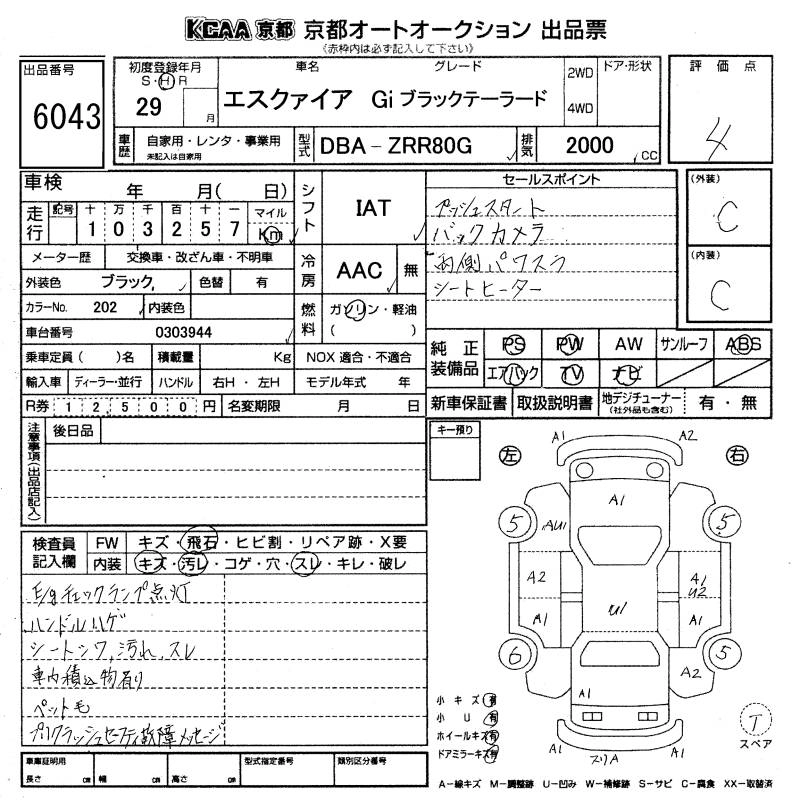 KCAA 京都 京都オートオークション 出品票
《赤枠内は必ず記入して下さい》
出品番号
6043
初度登録年月
S・H・R
29
月
車名
グレード
エスクァイア Gi ブラックテーラード
2WD
4WD
ドア・形状
評価点
4
車歴
自家用・レンタ・事業用
未記入は自家用
型式
DBA－ZRR80G
排気
2000
CC
車検
年
月(
日)
走行
記号
十 万 千 百 十 一
1 0 3 2 5 7
マイル
Km
シフト
IAT
メーター歴
交換車・改ざん車・不明車
外装色
ブラック
色替
有
冷房
AAC
無
カラーNo.
202
内装色
燃料
ガソリン・軽油
( )
車台番号
0303944
乗車定員( )名
積載量
Kg
NOX 適合・不適合
輸入車
ディーラー・並行
ハンドル
右H・左H
モデル年式
年
R券
1 2,5 0 0 円
名変期限
月
日
セールスポイント
プッシュスタート
バックカメラ
両側パワスラ
シートヒーター
(外装)
C
(内装)
C
純正装備品
PS
PW
AW
サンルーフ
ABS
エアバック
TV
ナビ
新車保証書
取扱説明書
地デジチューナー
(社外品も含む)
有・無
注意事項(出品店記入)
後日品
キー預り
左
右
A1
A2
A1
5
AU1
5
A2
A1
U2
A1
U1
A1
6
5
A2
A1
A1
スリA
A1
T
スペア
検査員記入欄
FW
キズ・飛石・ヒビ割・リペア跡・X要
内装
キズ・汚レ・コゲ・穴・スレ・キレ・破レ
E/gチェックランプ点灯
ハンドルハゲ
シートシワ,汚れ,スレ
車内積込物有り
ペット毛
プリクラッシュセーフティ故障メッセージ
小キズ 有
小U 有
ホイールキズ 有
ドアミラーキズ 有
車庫証明用
長さ
cm
幅
cm
高さ
cm
型式指定番号
類別区分番号
A－線キズ M－調整跡 U－凹み W－補修跡 S－サビ C－腐食 XX－取替済